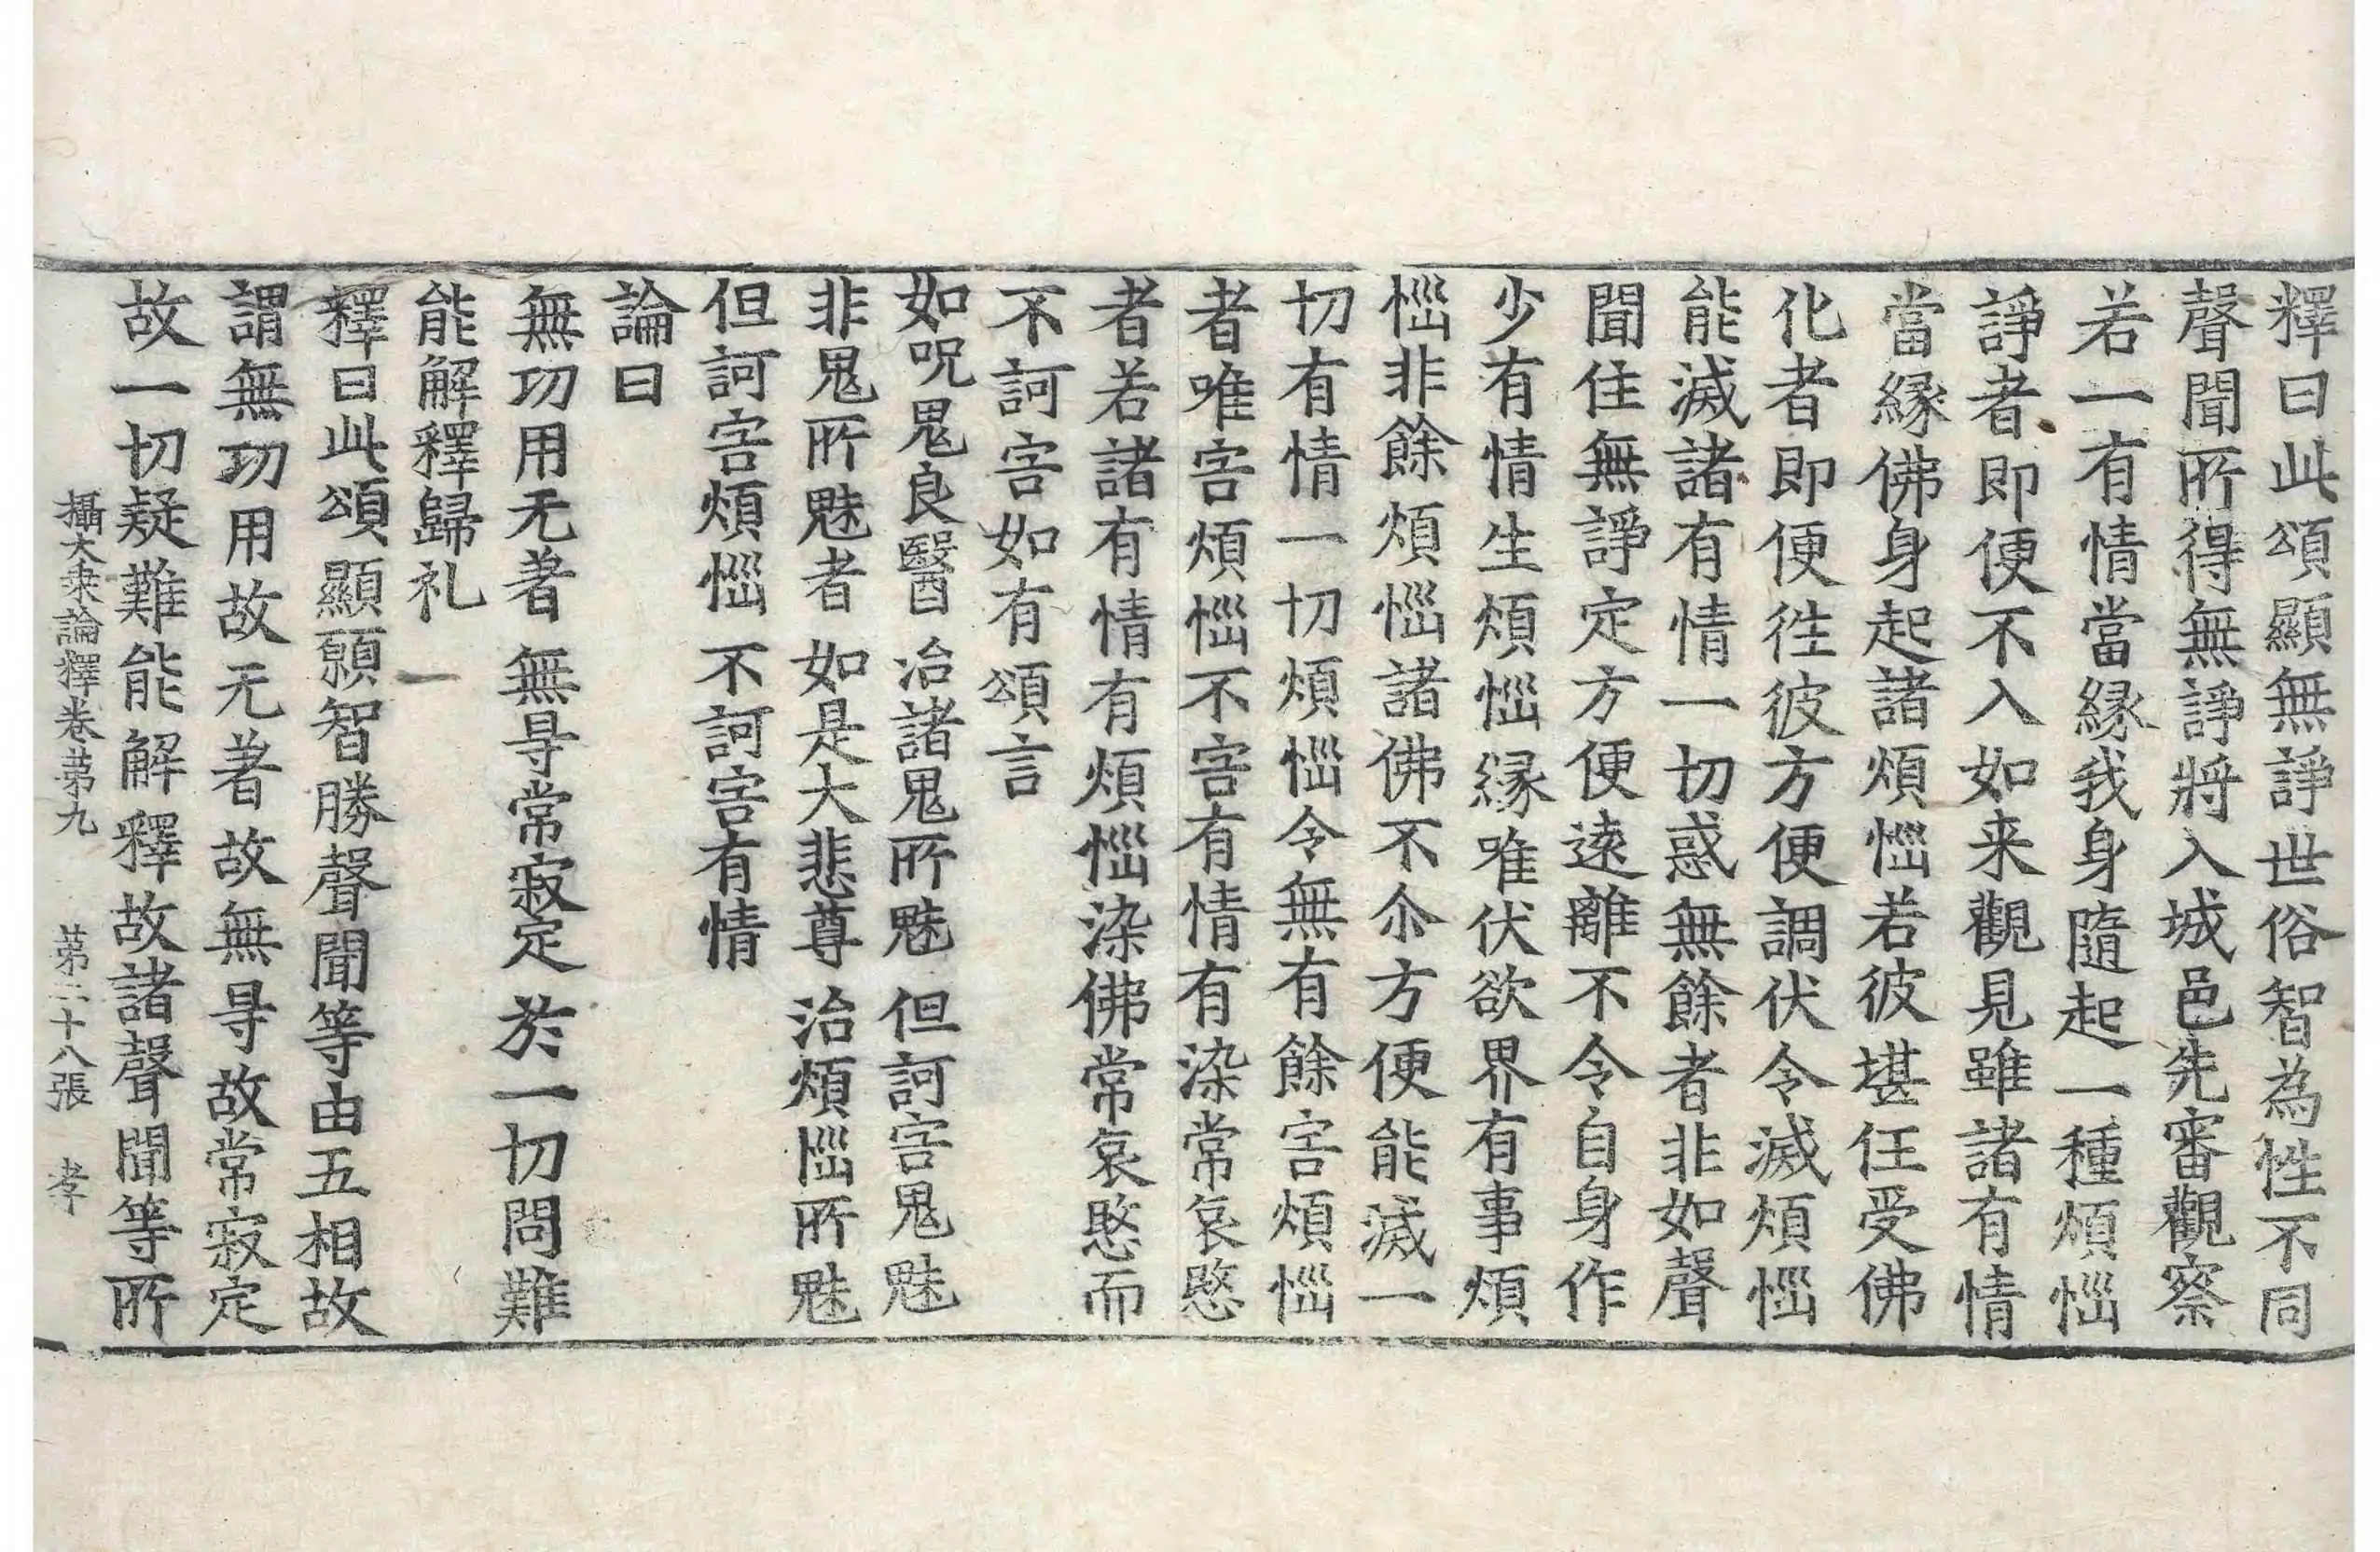 釋曰此頌顯無諍世俗智為性不同
聲聞所得無諍將入城邑先審觀察
若一有情當縁我身隨起一種煩惱
諍者即便不入如来觀見雖諸有情
當縁佛身起諸煩惱若彼堪任受佛
化者即便往彼方便調伏令滅煩惱
能滅諸有情一切惑無餘者非如聲
聞住無諍定方便遠離不令自身作
少有情生煩惱縁唯伏欲界有事煩
惱非餘煩惱諸佛不尒方便能滅一
切有情一切煩惱令無有餘害煩惱
者唯害煩惱不害有情有染常哀愍
者若諸有情有煩惱染佛常哀愍而
不訶害如有頌言
如呪鬼良醫 治諸鬼所魅 但訶害鬼魅
非鬼所魅者 如是大悲尊 治煩惱所魅
但訶害煩惱 不訶害有情
論曰
無功用无著 無㝵常寂定 於一切問難
能解釋歸礼
釋曰此頌顯願智勝聲聞等由五相故
謂無功用故无著故無㝵故常寂定
故一切疑難能解釋故諸聲聞等所
攝大乗論釋卷苐九 苐二十八張 孝